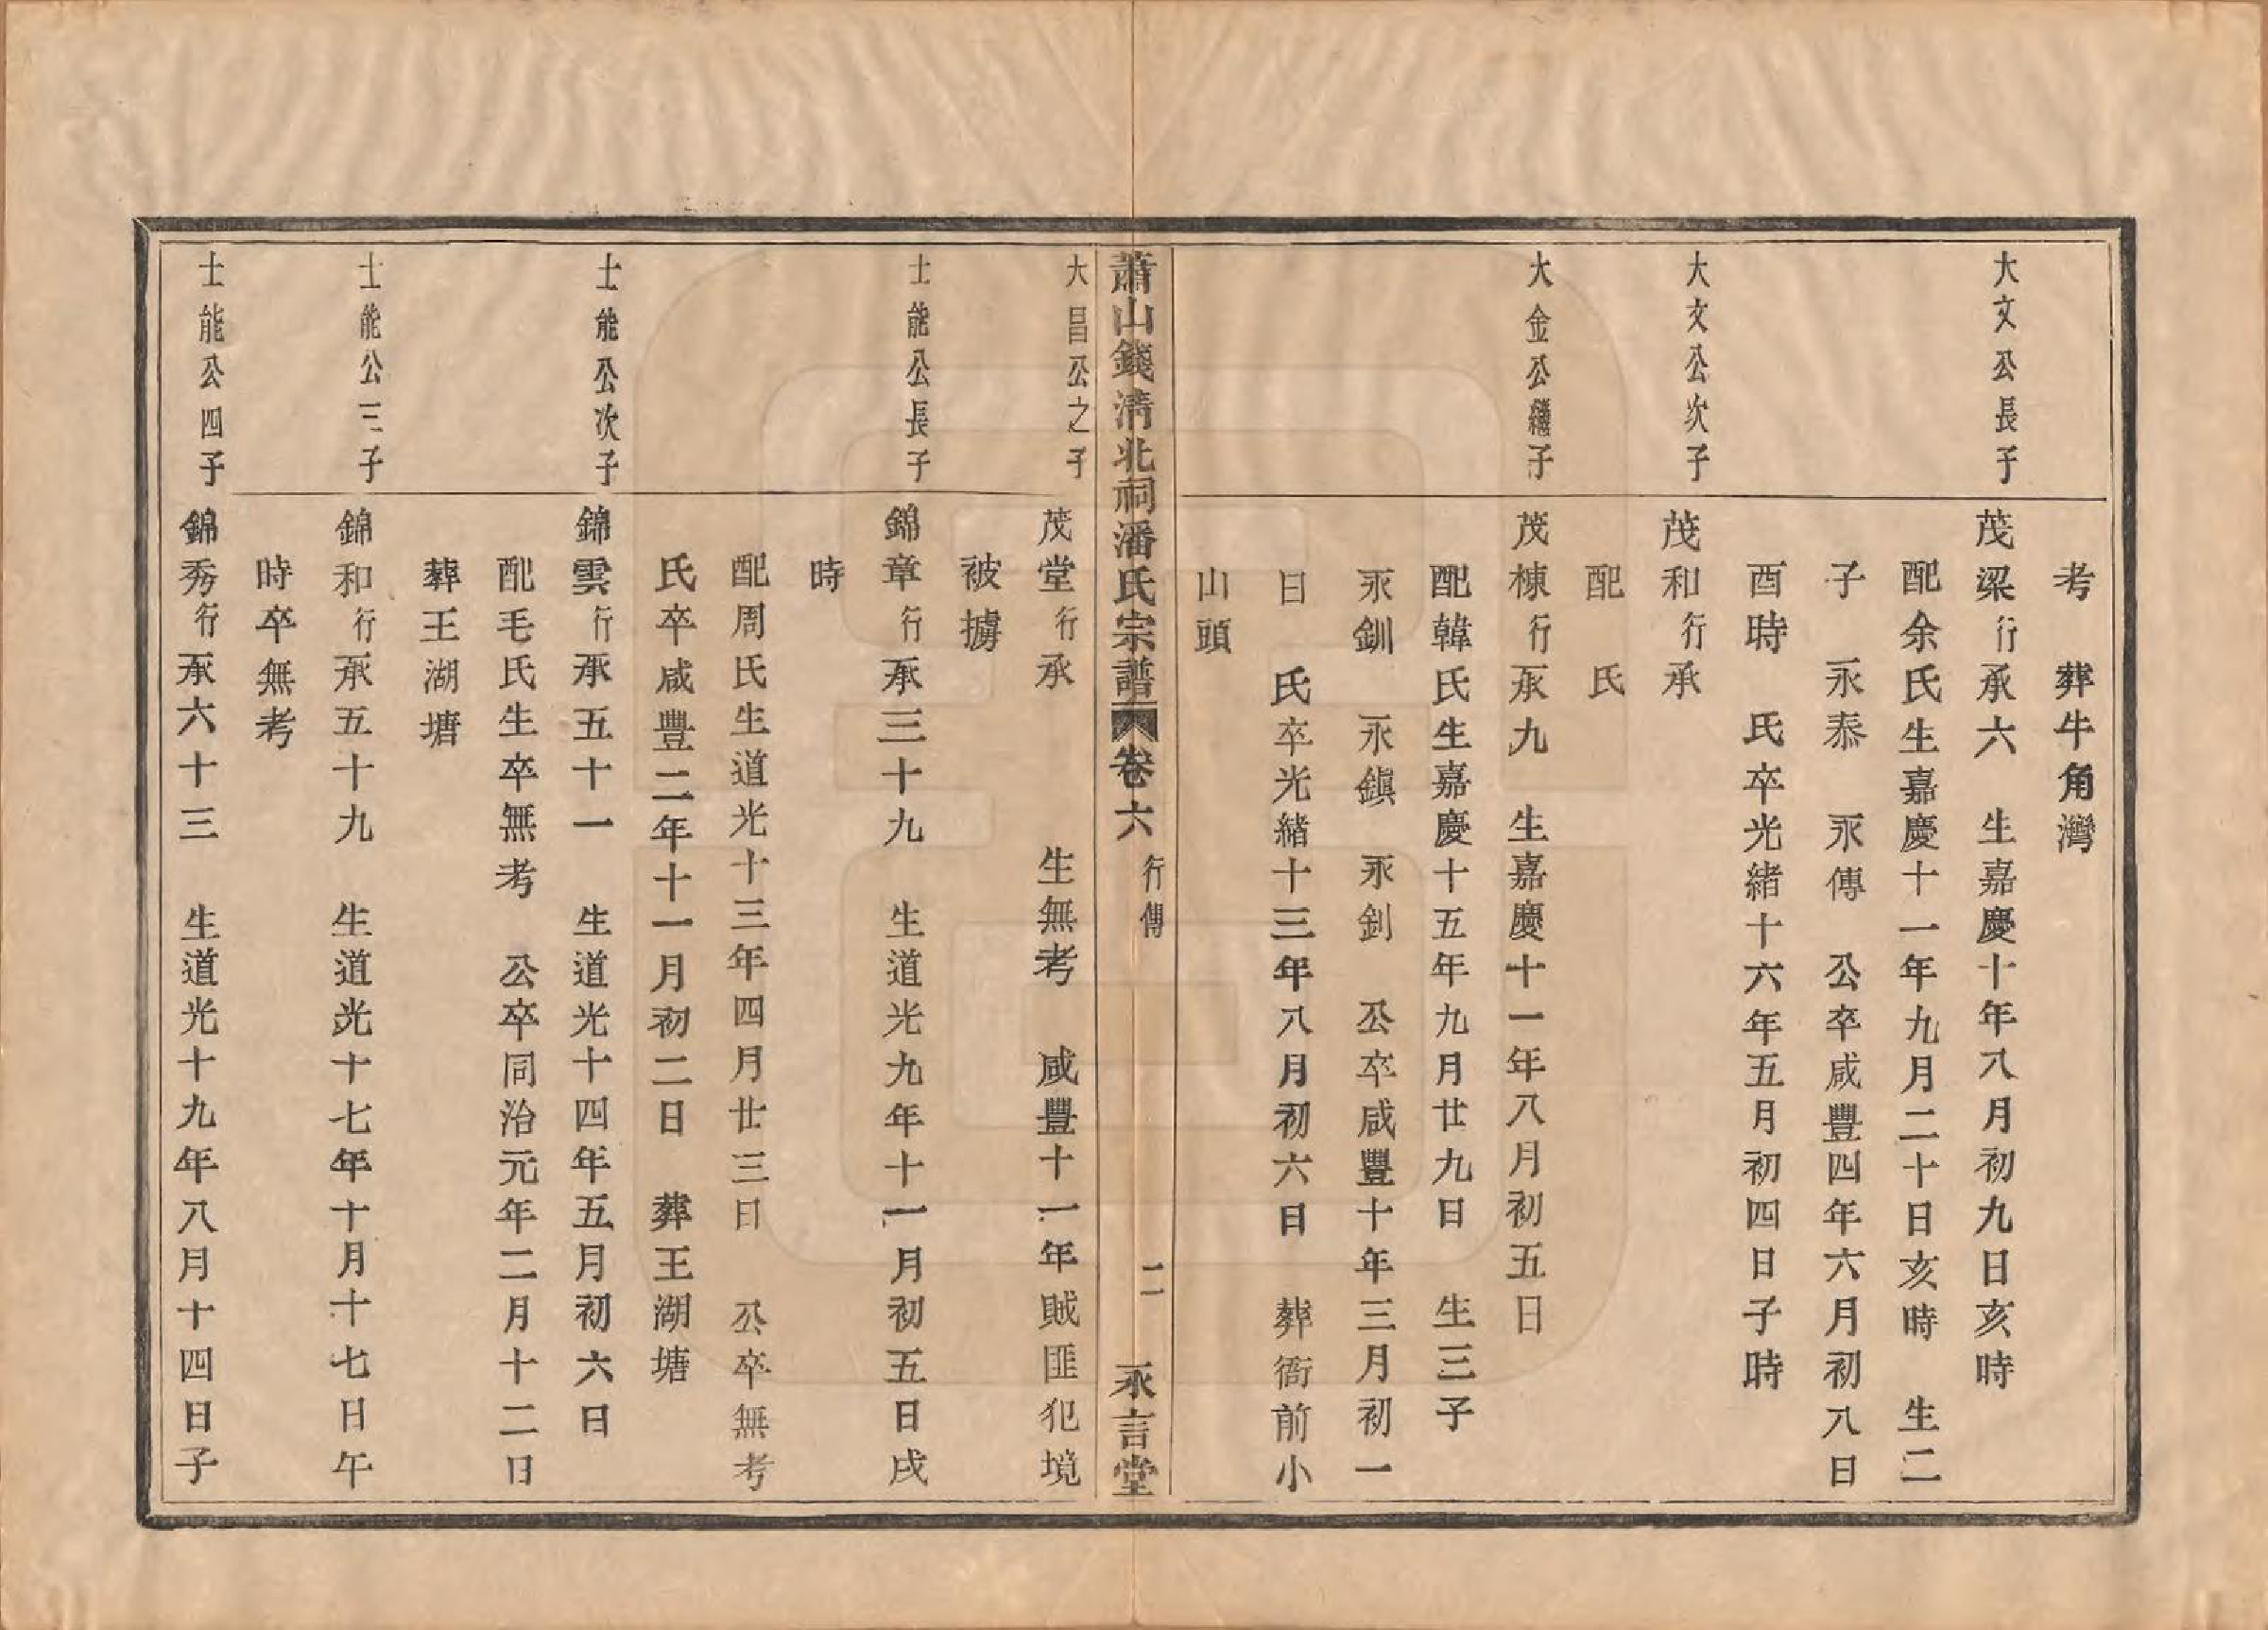 考　葬牛角灣
大文公長子　茂梁行承六　生嘉慶十年八月初九日亥時
配余氏生嘉慶十一年九月二十日亥時　生二
子　永泰　永傳　公卒咸豐四年六月初八日
酉時　氏卒光緒十六年五月初四日子時
大文公次子　茂和行承
配　氏
大金公繼子　茂棟行承九　生嘉慶十一年八月初五日
配韓氏生嘉慶十五年九月廿九日　生三子
永釧　永鎭　永釗　公卒咸豐十年三月初一
日　氏卒光緒十三年八月初六日　葬衙前小
山頭
蕭山錢淸北祠潘氏宗譜　卷六　行傳　二　永言堂
大昌公之子　茂堂行承　生無考　咸豐十一年賊匪犯境
被擄
士能公長子　錦章行承三十九　生道光九年十一月初五日戌
時
配周氏生道光十三年四月廿三日　公卒無考
氏卒咸豐二年十一月初二日　葬王湖塘
士能公次子　錦雲行承五十一　生道光十四年五月初六日
配毛氏生卒無考　公卒同治元年二月十二日
葬王湖塘
士能公三子　錦和行承五十九　生道光十七年十月十七日午
時卒無考
士能公四子　錦秀行承六十三　生道光十九年八月十四日子